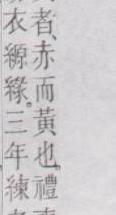 者、赤而黃也。禮
衣縓緣。三年練